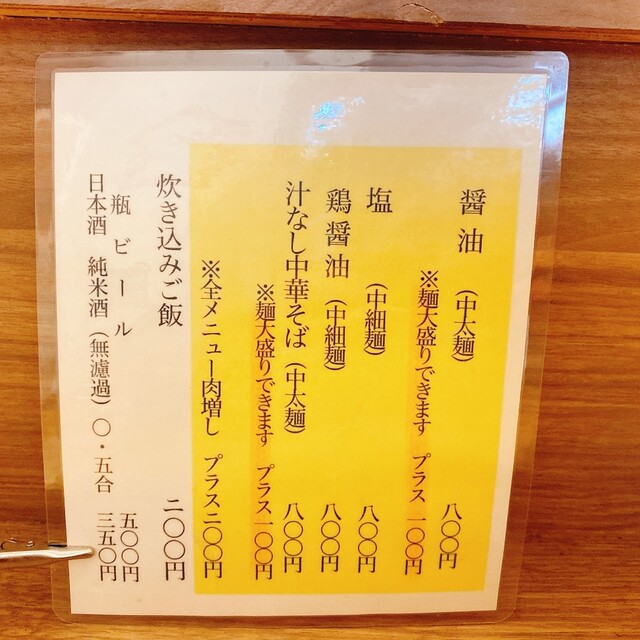 醤油 (中太麺) 八〇〇円
※麺大盛りできます プラス一〇〇円
塩 (中細麺) 八〇〇円
鶏醤油 (中細麺) 八〇〇円
汁なし中華そば (中太麺) 八〇〇円
※麺大盛りできます プラス一〇〇円
※全メニュー肉増し プラス二〇〇円
炊き込みご飯 二〇〇円
瓶ビール 五〇〇円
日本酒 純米酒 (無濾過) 〇・五合 三五〇円